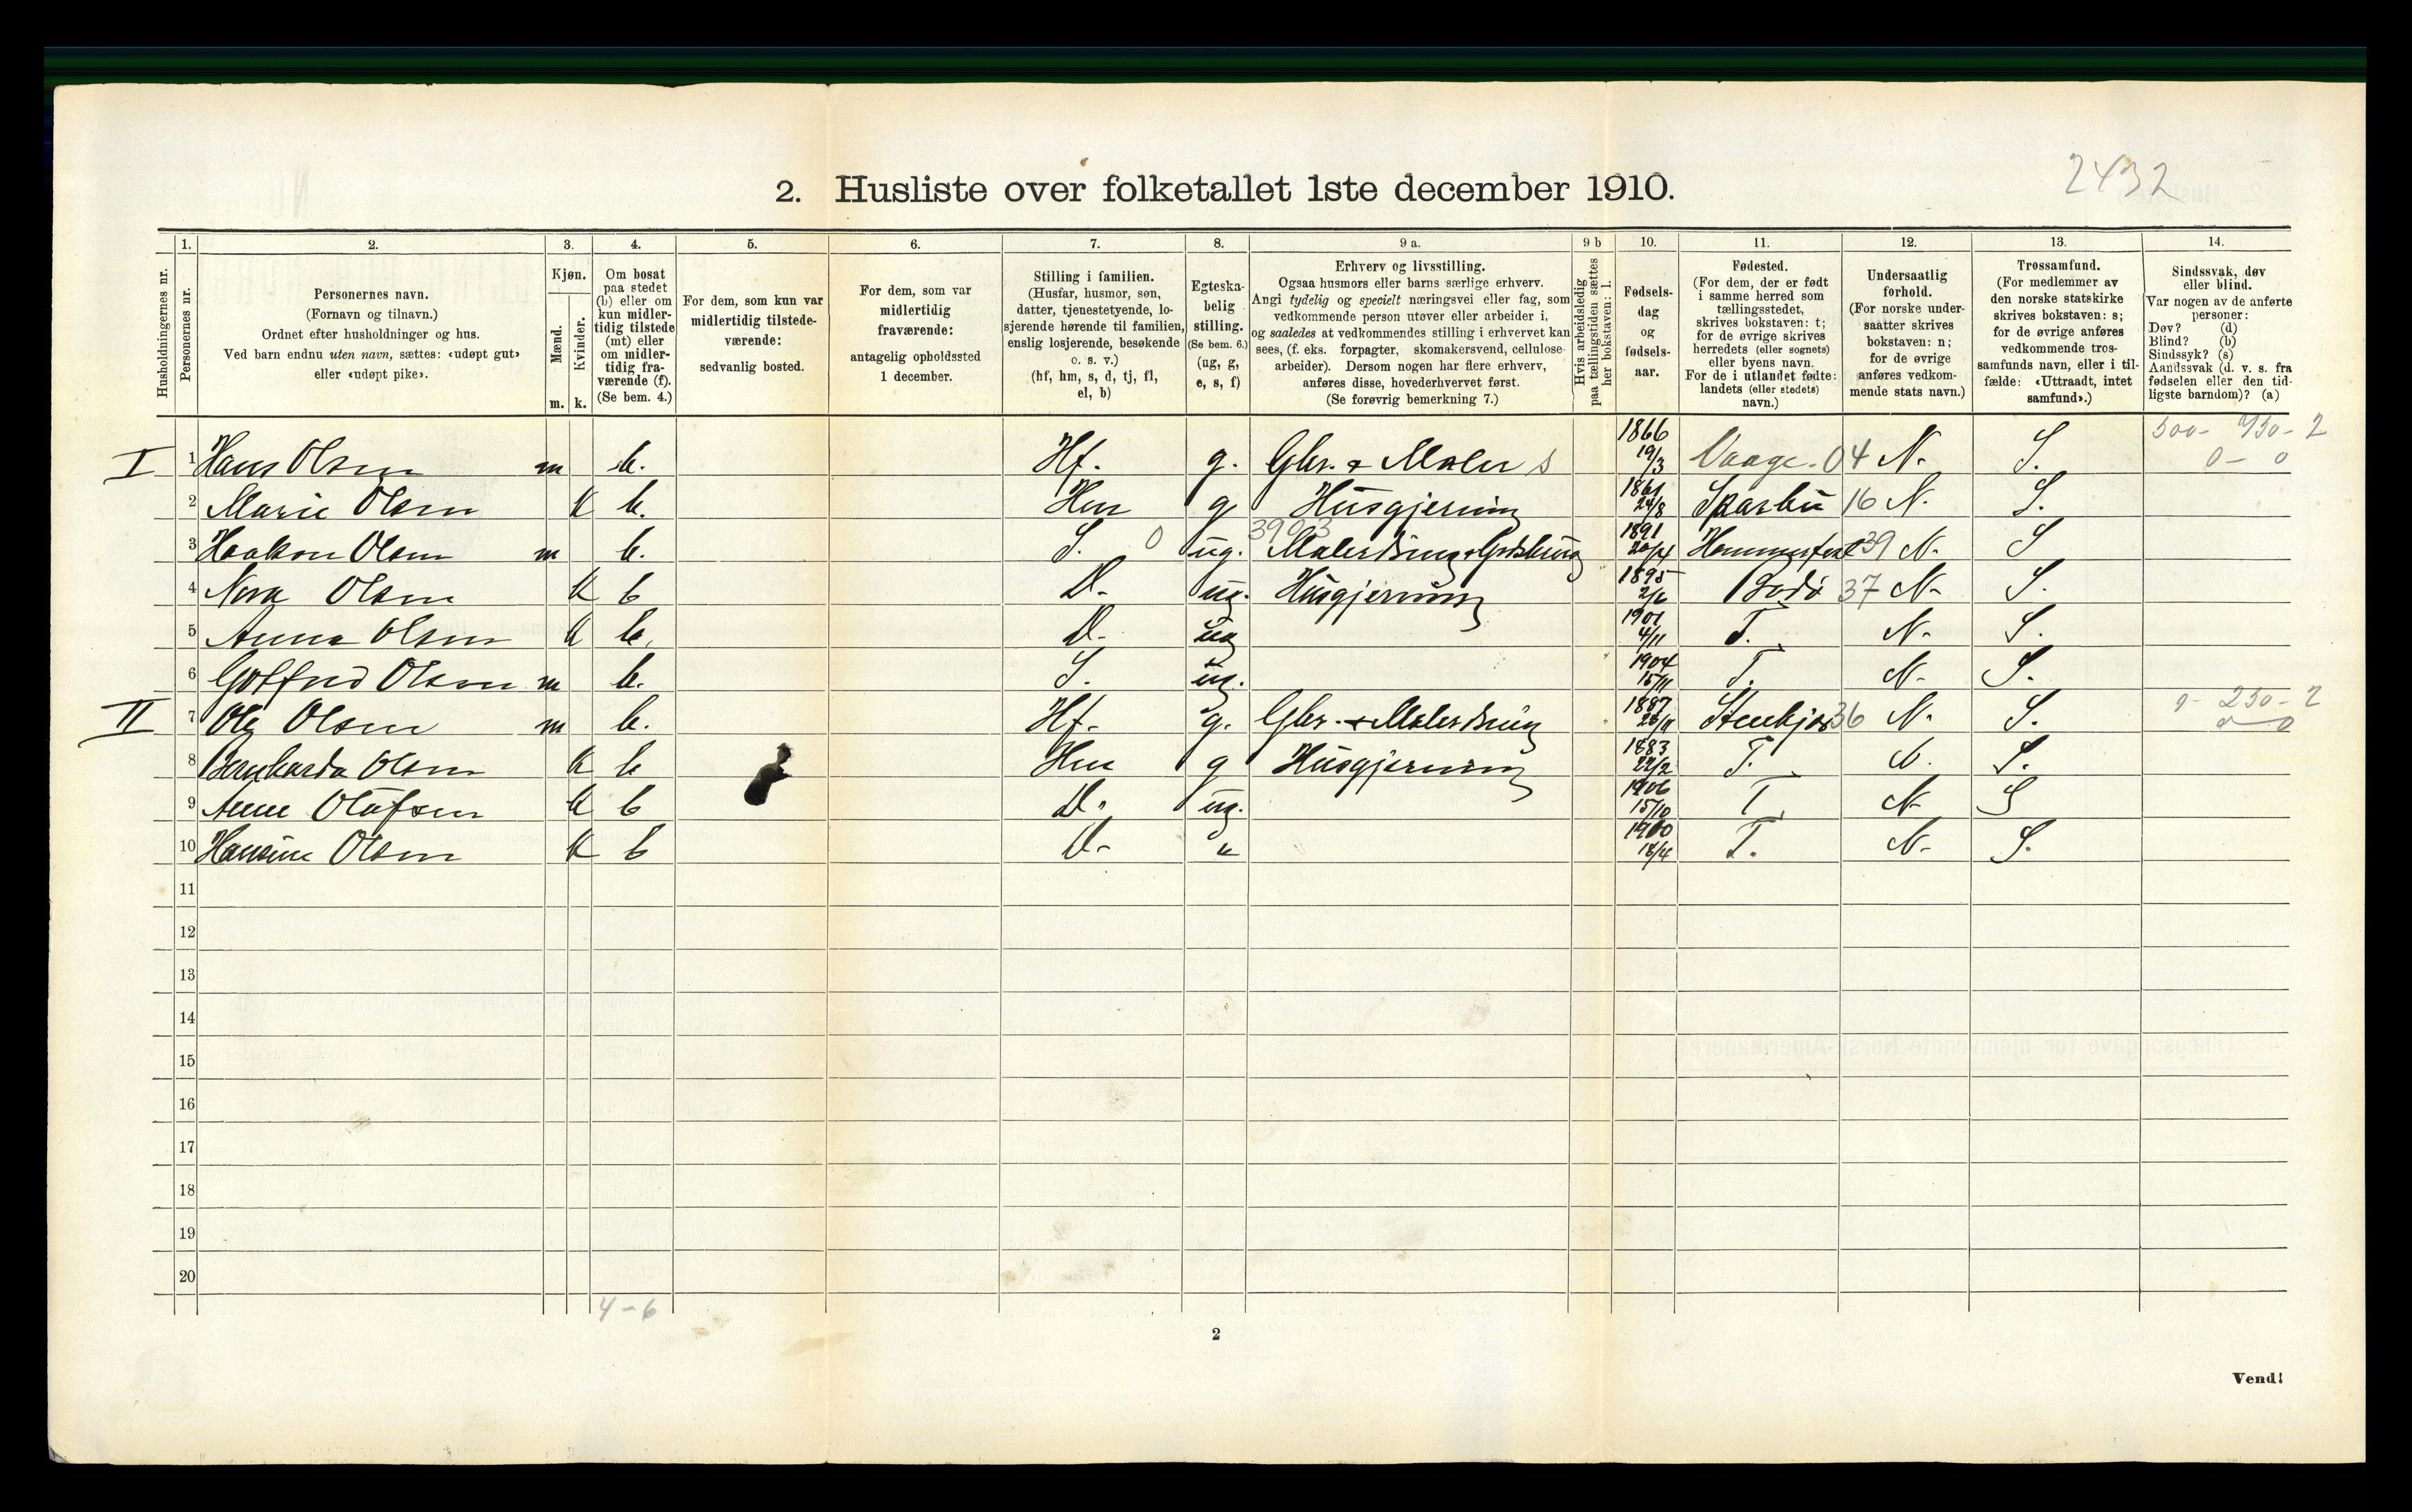 2432
2. Husliste over folketallet 1ste december 1910.
Husholdningernes nr.
1.
Personernes nr.
2.
Personernes navn.
(Fornavn og tilnavn.)
Ordnet efter husholdninger og hus.
Ved barn endnu uten navn, sættes: «udøpt gut»
eller «udøpt pike».
3.
Kjøn.
Mænd.
Kvinder.
m. k.
4.
Om bosat
paa stedet
(b) eller om
kun midler-
tidig tilstede
(mt) eller
om midler-
tidig fra-
værende (f).
(Se bem. 4.)
5.
For dem, som kun var
midlertidig tilstede-
værende:
sedvanlig bosted.
6.
For dem, som var
midlertidig
fraværende:
antagelig opholdssted
1 december.
7.
Stilling i familien.
(Husfar, husmor, søn,
datter, tjenestetyende, lo-
sjerende hørende til familien,
enslig losjerende, besøkende
o. s. v.)
(hf, hm, s, d, tj, fl,
el, b)
8.
Egteska-
belig
stilling.
(Se bem. 6.)
(ug, g,
e, s, f)
9 a.
Erhverv og livsstilling.
Ogsaa husmors eller barns særlige erhverv.
Angi tydelig og specielt næringsvei eller fag, som
vedkommende person utøver eller arbeider i,
og saaledes at vedkommendes stilling i erhvervet kan
sees, (f. eks. forpagter, skomakersvend, cellulose-
arbeider). Dersom nogen har flere erhverv,
anføres disse, hovederhvervet først.
(Se forøvrig bemerkning 7.)
9 b
Hvis arbeidsledig
paa tællingstiden sættes
her bokstaven: l.
10.
Fødsels-
dag
og
fødsels-
aar.
11.
Fødested.
(For dem, der er født
i samme herred som
tællingsstedet,
skrives bokstaven: t;
for de øvrige skrives
herredets (eller sognets)
eller byens navn.
For de i utlandet fødte:
landets (eller stedets)
navn.)
12.
Undersaatlig
forhold.
(For norske under-
saatter skrives
bokstaven: n;
for de øvrige
anføres vedkom-
mende stats navn.)
13.
Trossamfund.
(For medlemmer av
den norske statskirke
skrives bokstaven: s;
for de øvrige anføres
vedkommende tros-
samfunds navn, eller i til-
fælde: «Uttraadt, intet
samfund».)
14.
Sindssvak, døv
eller blind.
Var nogen av de anførte
personer:
Døv? (d)
Blind? (b)
Sindssyk? (s)
Aandssvak (d. v. s. fra
fødselen eller den tid-
ligste barndom)? (a)
I 1 Hans Olsen m b. Hf. g. Gbr. + Maler s 1866 19/3 Vaage. 04 N. S. 500- 950- 2
0- 0
2 Marie Olsen K b. Hm g Husgjerning 1861 24/8 Sparbu 16 N. S.
3903
3 Haakon Olsen m b. S. 0 ug. 1891 20/4 Hammerfest 39 N. S
4 Nora Olsen K b D- ug. Husgjerning 1895 2/6 Bodø 37 N- S.
5 Anna Olsen K b. D- ug 1901 4/11 T. N- S.
6 Gotfred Olsen m b. S. ug. 1904 15/11 T. N- S.
II 7 Ole Olsen m b. Hf- g. Gbr. + 1887 26/11 Stenkjær 36 N. S. 0- 230- 2
0- 0
8 Bernharda Olsen K b Hm g Husgjerning 1883 22/2 T. N. S.
9 Anne Olafsen K b D. ug. 1906 15/10 T N- S
10 Hansine Olsen K b D- " 1910 18/4 T. N- S.
11
12
13
14
15
16
17
18
19
20
4-6
2
Vend!